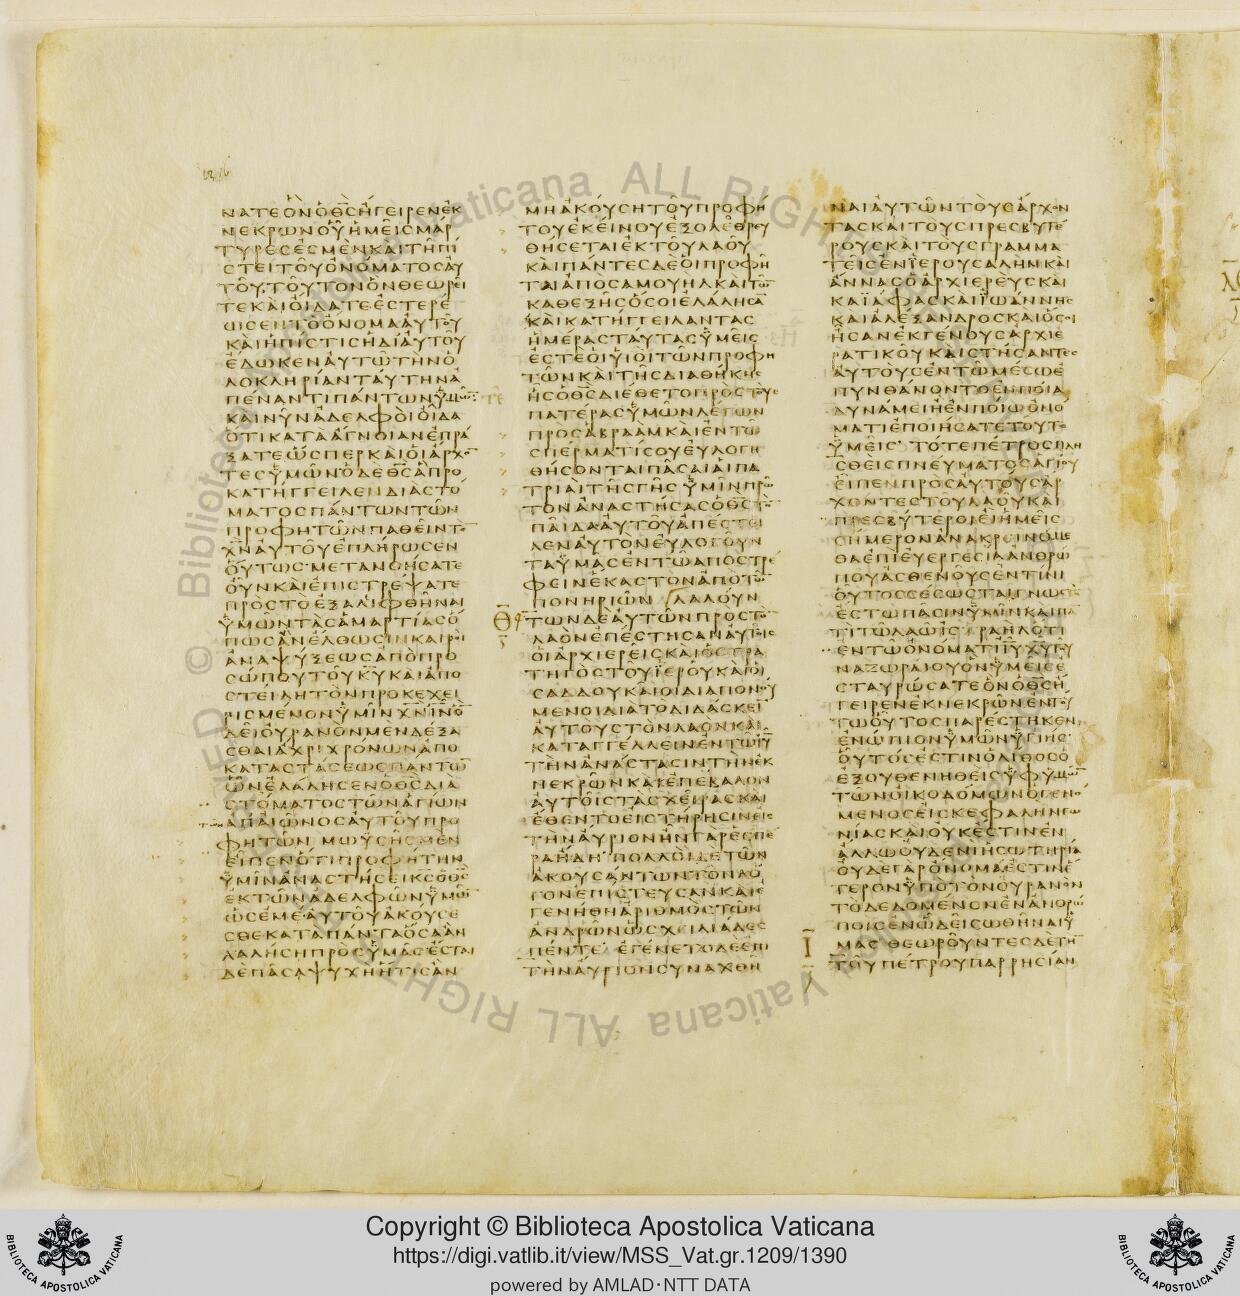 ΝΑΤΕΟΝΟΘ̅Ϲ̅ΗΓΕΙΡΕΝΕΚ
ΝΕΚΡΩΝΟΥΗΜΕΙϹΜΑΡ
ΤΥΡΕϹΕϹΜΕΝΚΑΙΤΗΠΙ
ϹΤΕΙΤΟΥΟΝΟΜΑΤΟϹΑΥ
ΤΟΥΤΟΥΤΟΝΟΝΘΕΩΡΕΙ
ΤΕΚΑΙΟΙΔΑΤΕΕϹΤΕΡΕ
ΩϹΕΝΤΟΟΝΟΜΑΑΥΤΟΥ
ΚΑΙΗΠΙϹΤΙϹΗΔΙΑΥΤΟΥ
ΕΔΩΚΕΝΑΥΤΩΤΗΝΟ
ΛΟΚΛΗΡΙΑΝΤΑΥΤΗΝΑ
ΠΕΝΑΝΤΙΠΑΝΤΩΝΥΜΩ̅
ΚΑΙΝΥΝΑΔΕΛΦΟΙΟΙΔΑ
ΟΤΙΚΑΤΑΑΓΝΟΙΑΝΕΠΡΑ
ΞΑΤΕΩϹΠΕΡΚΑΙΟΙΑΡΧΟ̅
ΤΕϹΥΜΩΝΟΔΕΘ̅Ϲ̅ΑΠΡΟ
ΚΑΤΗΓΓΕΙΛΕΝΔΙΑϹΤΟ
ΜΑΤΟϹΠΑΝΤΩΝΤΩΝ
ΠΡΟΦΗΤΩΝΠΑΘΕΙΝΤΟ̅
Χ̅Ν̅ΑΥΤΟΥΕΠΛΗΡΩϹΕΝ
ΟΥΤΩϹ·ΜΕΤΑΝΟΗϹΑΤΕ
ΟΥΝΚΑΙΕΠΙϹΤΡΕΨΑΤΕ
ΠΡΟϹΤΟΕΞΑΛΙΦΘΗΝΑΙ
ΥΜΩΝΤΑϹΑΜΑΡΤΙΑϹΟ
ΠΩϹΑΝΕΛΘΩϹΙΝΚΑΙΡΟΙ
ΑΝΑΨΥΞΕΩϹΑΠΟΠΡΟ
ϹΩΠΟΥΤΟΥΚ̅Υ̅ΚΑΙΑΠΟ
ϹΤΕΙΛΗΤΟΝΠΡΟΚΕΧΕΙ
ΡΙϹΜΕΝΟΝΥΜΙΝΧ̅Ν̅Ι̅Ν̅Ο̅
ΔΕΙΟΥΡΑΝΟΝΜΕΝΔΕΞΑ
ϹΘΑΙΑΧΡΙΧΡΟΝΩΝΑΠΟ
ΚΑΤΑϹΤΑϹΕΩϹΠΑΝΤΩ̅
ΩΝΕΛΑΛΗϹΕΝΟΘ̅Ϲ̅ΔΙΑ
ϹΤΟΜΑΤΟϹΤΩΝΑΓΙΩΝ
ΤΩ̅ΑΠΑΙΩΝΟϹΑΥΤΟΥΠΡΟ
ΦΗΤΩΝ ΜΩΥϹΗϹΜΕΝ
ΕΙΠΕΝΟΤΙΠΡΟΦΗΤΗΝ
ΥΜΙΝΑΝΑϹΤΗϹΕΙΚ̅Ϲ̅ΟΘ̅Ϲ̅
ΕΚΤΩΝΑΔΕΛΦΩΝΥΜΩ̅
ΩϹΕΜΕ·ΑΥΤΟΥΑΚΟΥϹΕ
ϹΘΕΚΑΤΑΠΑΝΤΑΟϹΑΑΝ
ΛΑΛΗϹΗΠΡΟϹΥΜΑϹΕϹΤΑΙ
ΔΕΠΑϹΑΨΥΧΗΗΤΙϹΑΝ
ΜΗΑΚΟΥϹΗΤΟΥΠΡΟΦΗ
ΤΟΥΕΚΕΙΝΟΥΕΞΟΛΕΘΡΕΥ
ΘΗϹΕΤΑΙΕΚΤΟΥΛΑΟΥ
ΚΑΙΠΑΝΤΕϹΔΕΟΙΠΡΟΦΗ
ΤΑΙΑΠΟϹΑΜΟΥΗΛΚΑΙΤΩ̅
ΚΑΘΕΞΗϹΟϹΟΙΕΛΑΛΗϹΑ̅
ΚΑΙΚΑΤΗΓΓΕΙΛΑΝΤΑϹ
ΗΜΕΡΑϹΤΑΥΤΑϹΥΜΕΙϹ
ΕϹΤΕΟΙΥΙΟΙΤΩΝΠΡΟΦΗ
ΤΩΝΚΑΙΤΗϹΔΙΑΘΗΚΗϹ
ΗϹΟΘ̅Ϲ̅ΔΙΕΘΕΤΟΠΡΟϹΤΟΥϹ
ΠΑΤΕΡΑϹΥΜΩΝΛΕΓΩΝ
ΠΡΟϹΑΒΡΑΑΜΚΑΙΕΝΤΩ
ϹΠΕΡΜΑΤΙϹΟΥΕΥΛΟΓΗ
ΘΗϹΟΝΤΑΙΠΑϹΑΙΑΙΠΑ
ΤΡΙΑΙΤΗϹΓΗϹΥΜΙΝΠΡΩ̅
ΤΟΝΑΝΑϹΤΗϹΑϹΟΘ̅Ϲ̅ΤΟ̅
ΠΑΙΔΑΑΥΤΟΥΑΠΕϹΤΕΙ
ΛΕΝΑΥΤΟΝΕΥΛΟΓΟΥΝ
ΤΑΥΜΑϹΕΝΤΩΑΠΟϹΤΡΕ
ΦΕΙΝΕΚΑϹΤΟΝΑΠΟΤΩ̅
ΠΟΝΗΡΙΩΝ ΛΑΛΟΥΝ
Θ̅ ΤΩΝΔΕΑΥΤΩΝΠΡΟϹΤΟ̅
ΛΑΟΝΕΠΕϹΤΗϹΑΝΑΥΤΟΙϹ
ΟΙΑΡΧΙΕΡΕΙϹΚΑΙΟϹΤΡΑ
ΤΗΓΟϹΤΟΥΙΕΡΟΥΚΑΙΟΙ
ϹΑΔΔΟΥΚΑΙΟΙΔΙΑΠΟΝΟΥ
ΜΕΝΟΙΔΙΑΤΟΔΙΔΑϹΚΕΙ̅
ΑΥΤΟΥϹΤΟΝΛΑΟΝΚΑΙ
ΚΑΤΑΓΓΕΛΛΕΙΝΕΝΤΩΙ̅Υ̅
ΤΗΝΑΝΑϹΤΑϹΙΝΤΗΝΕΚ
ΝΕΚΡΩΝΚΑΙΕΠΕΒΑΛΟΝ
ΑΥΤΟΙϹΤΑϹΧΕΙΡΑϹΚΑΙ
ΕΘΕΝΤΟΕΙϹΤΗΡΗϹΙΝΕΙϹ
ΤΗΝΑΥΡΙΟΝΗΝΓΑΡΕϹΠΕ
ΡΑΗΔΗ ΠΟΛΛΟΙΔΕΤΩΝ
ΑΚΟΥϹΑΝΤΩΝΤΟΝΛΟ
ΓΟΝΕΠΙϹΤΕΥϹΑΝΚΑΙΕ
ΓΕΝΗΘΗΑΡΙΘΜΟϹΤΩΝ
ΑΝΔΡΩΝΩϹΧΕΙΛΙΑΔΕϹ
ΠΕΝΤΕ ΕΓΕΝΕΤΟΔΕΕΠΙ
ΤΗΝΑΥΡΙΟΝϹΥΝΑΧΘΗ
ΝΑΙΑΥΤΩΝΤΟΥϹΑΡΧΟΝ
ΤΑϹΚΑΙΤΟΥϹΠΡΕϹΒΥΤΕ
ΡΟΥϹΚΑΙΤΟΥϹΓΡΑΜΜΑ
ΤΕΙϹΕΝΙΕΡΟΥϹΑΛΗΜΚΑΙ
ΑΝΝΑϹΟΑΡΧΙΕΡΕΥϹΚΑΙ
ΚΑΙΑΦΑϹΚΑΙΙΩΑΝΝΗϹ
ΚΑΙΑΛΕΞΑΝΔΡΟϹΚΑΙΟϹΟΙ
ΗϹΑΝΕΚΓΕΝΟΥϹΑΡΧΙΕ
ΡΑΤΙΚΟΥ ΚΑΙϹΤΗϹΑΝΤΕϹ
ΑΥΤΟΥϹΕΝΤΩΜΕϹΩΕ
ΠΥΝΘΑΝΟΝΤΟΕΝΠΟΙΑ
ΔΥΝΑΜΕΙΗΕΝΠΟΙΩΟΝΟ
ΜΑΤΙΕΠΟΙΗϹΑΤΕΤΟΥΤΟ
ΥΜΕΙϹ· ΤΟΤΕΠΕΤΡΟϹΠΛΗ
ϹΘΕΙϹΠΝΕΥΜΑΤΟϹΑΓΙΟΥ
ΕΙΠΕΝΠΡΟϹΑΥΤΟΥϹΑΡ
ΧΟΝΤΕϹΤΟΥΛΑΟΥΚΑΙ
ΠΡΕϹΒΥΤΕΡΟΙΕΙΗΜΕΙϹ
ϹΗΜΕΡΟΝΑΝΑΚΡΕΙΝΟΜΕ
ΘΑΕΠΙΕΥΕΡΓΕϹΙΑΑΝΘΡΩ
ΠΟΥΑϹΘΕΝΟΥϹΕΝΤΙΝΙ
ΟΥΤΟϹϹΕϹΩϹΤΑΙΓΝΩϹΤΟ̅
ΕϹΤΩΠΑϹΙΝΥΜΙΝΚΑΙΠΑ̅
ΤΙΤΩΛΑΩΙϹΡΑΗΛΟΤΙ
ΕΝΤΩΟΝΟΜΑΤΙΙ̅Υ̅Χ̅Υ̅ΤΟΥ
ΝΑΖΩΡΑΙΟΥΟΝΥΜΕΙϹΕ
ϹΤΑΥΡΩϹΑΤΕΟΝΟΘ̅Ϲ̅Η
ΓΕΙΡΕΝΕΚΝΕΚΡΩΝΕΝΤΟΥ
ΤΩΟΥΤΟϹΠΑΡΕϹΤΗΚΕΝ
ΕΝΩΠΙΟΝΥΜΩΝΥΓΙΗϹ·
ΟΥΤΟϹΕϹΤΙΝΟΛΙΘΟϹΟ
ΕΞΟΥΘΕΝΗΘΕΙϹΥΦΥΜΩ̅
ΤΩΝΟΙΚΟΔΟΜΩΝΟΓΕΝΟ
ΜΕΝΟϹΕΙϹΚΕΦΑΛΗΝΓΩ
ΝΙΑϹΚΑΙΟΥΚΕϹΤΙΝΕΝ
ΑΛΛΩΟΥΔΕΝΙΗϹΩΤΗΡΙΑ
ΟΥΔΕΓΑΡΟΝΟΜΑΕϹΤΙΝΕ
ΤΕΡΟΝΥΠΟΤΟΝΟΥΡΑΝΟΝ
ΤΟΔΕΔΟΜΕΝΟΝΕΝΑΝΘΡΩ
ΠΟΙϹΕΝΩΔΕΙϹΩΘΗΝΑΙΥ
Ι̅ ΜΑϹ ΘΕΩΡΟΥΝΤΕϹΔΕΤΗ̅
ΤΟΥΠΕΤΡΟΥΠΑΡΡΗϹΙΑΝ
© Biblioteca Apostolica Vaticana ALL RIGHTS RESERVED
Copyright © Biblioteca Apostolica Vaticana
https://digi.vatlib.it/view/MSS_Vat.gr.1209/1390
powered by AMLAD·NTT DATA
BIBLIOTECA APOSTOLICA VATICANA
BIBLIOTECA APOSTOLICA VATICANA